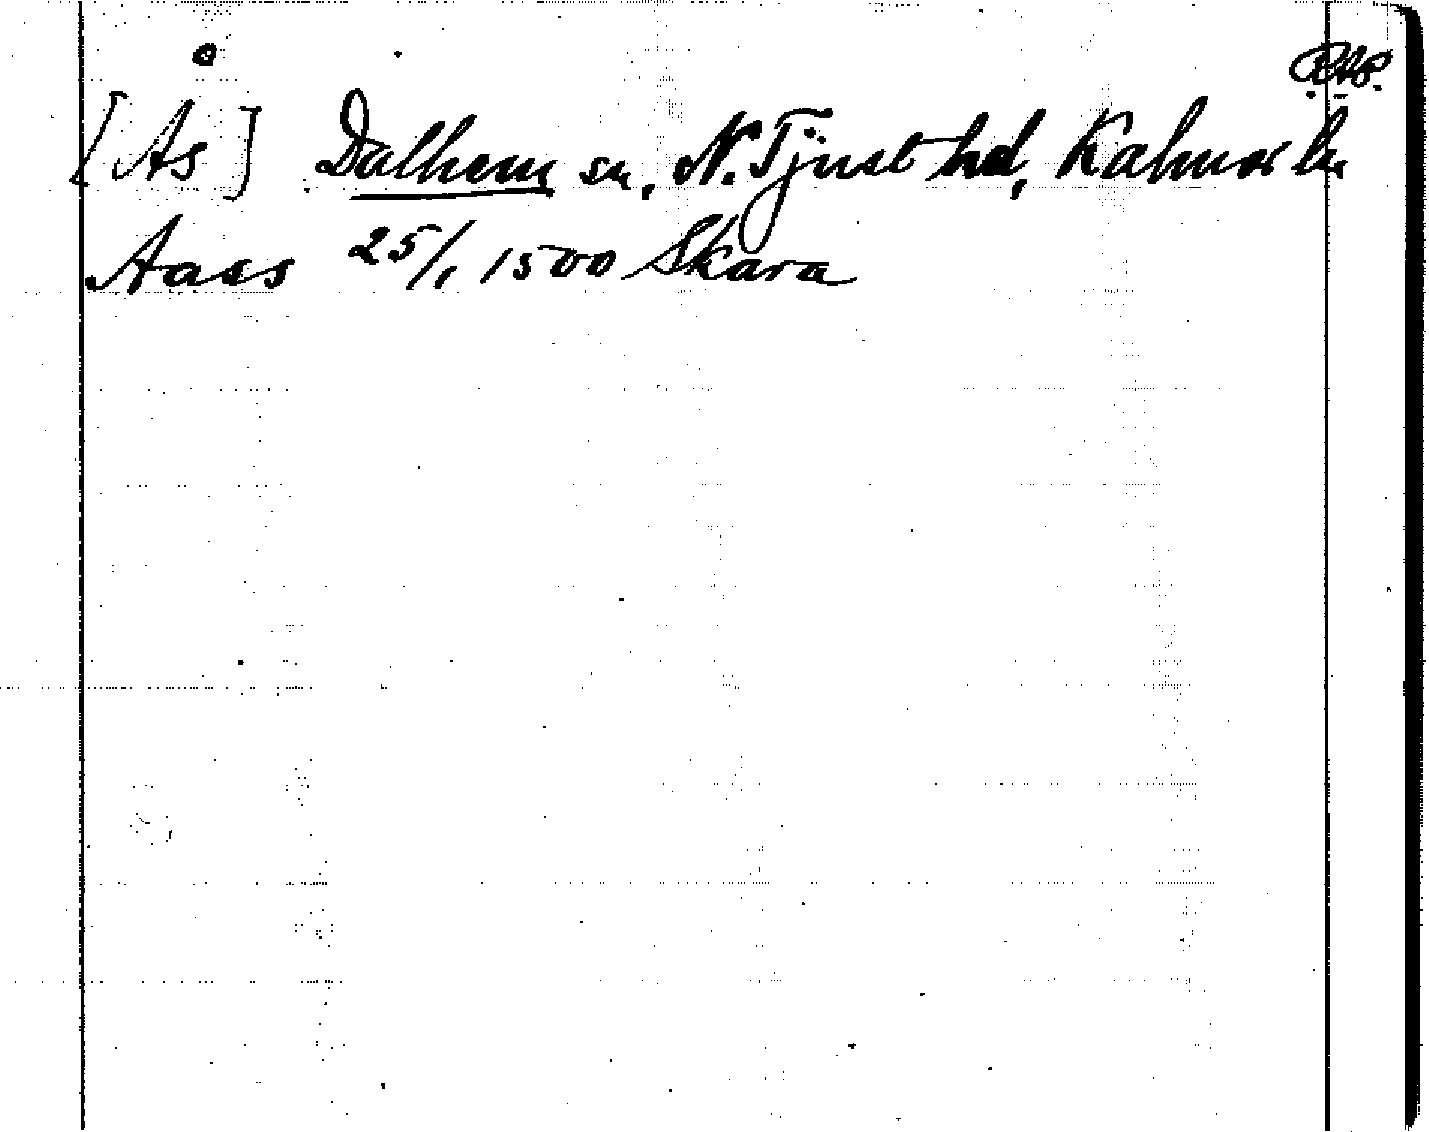 [Ås] Dalhem sn, N. Tjust hd, Kalmar ln
Aass 25/1 1500 Skara